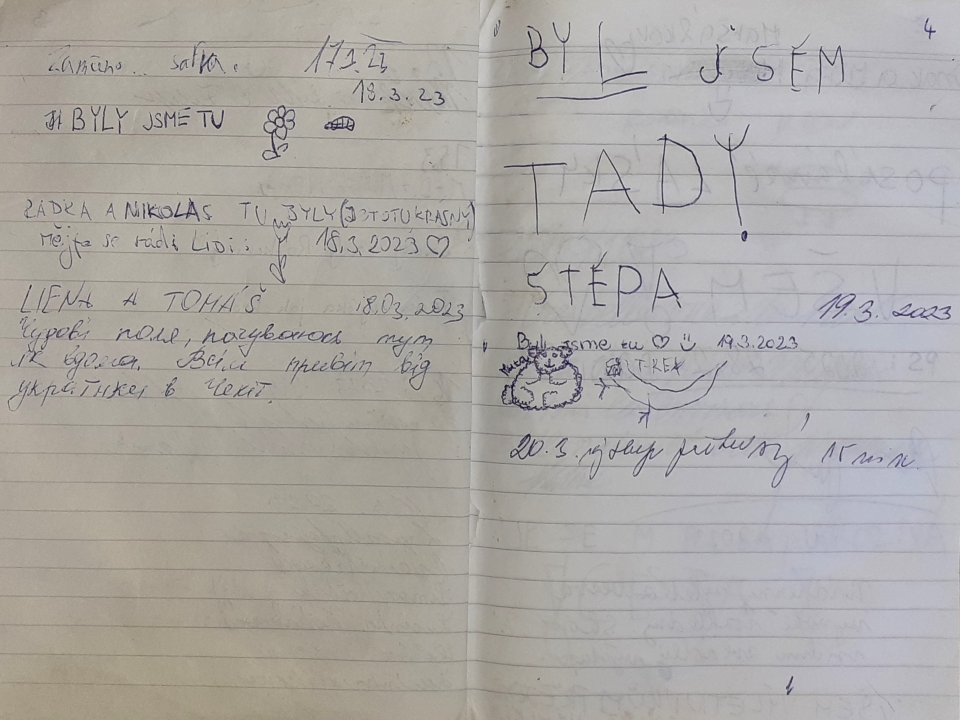 17.3.23
18.3.23
BYLY JSME TU
RÁDKA A NIKOLAS TU BYLY (JE TO TU KRÁSNÝ)
Mějte se rádi Lidi: 18.3.2023 ♡
LIENA A TOMÁŠ 18.03.2023
Чудові поля, почуваюся тут
як вдома. Всім привіт від
українки в Чехії.
4
BYL JSEM
TADY.
ŠTĚPA
19.3.2023
Byli jsme tu ♡ 19.3.2023
T-REX
20.3. výstup 15 min.